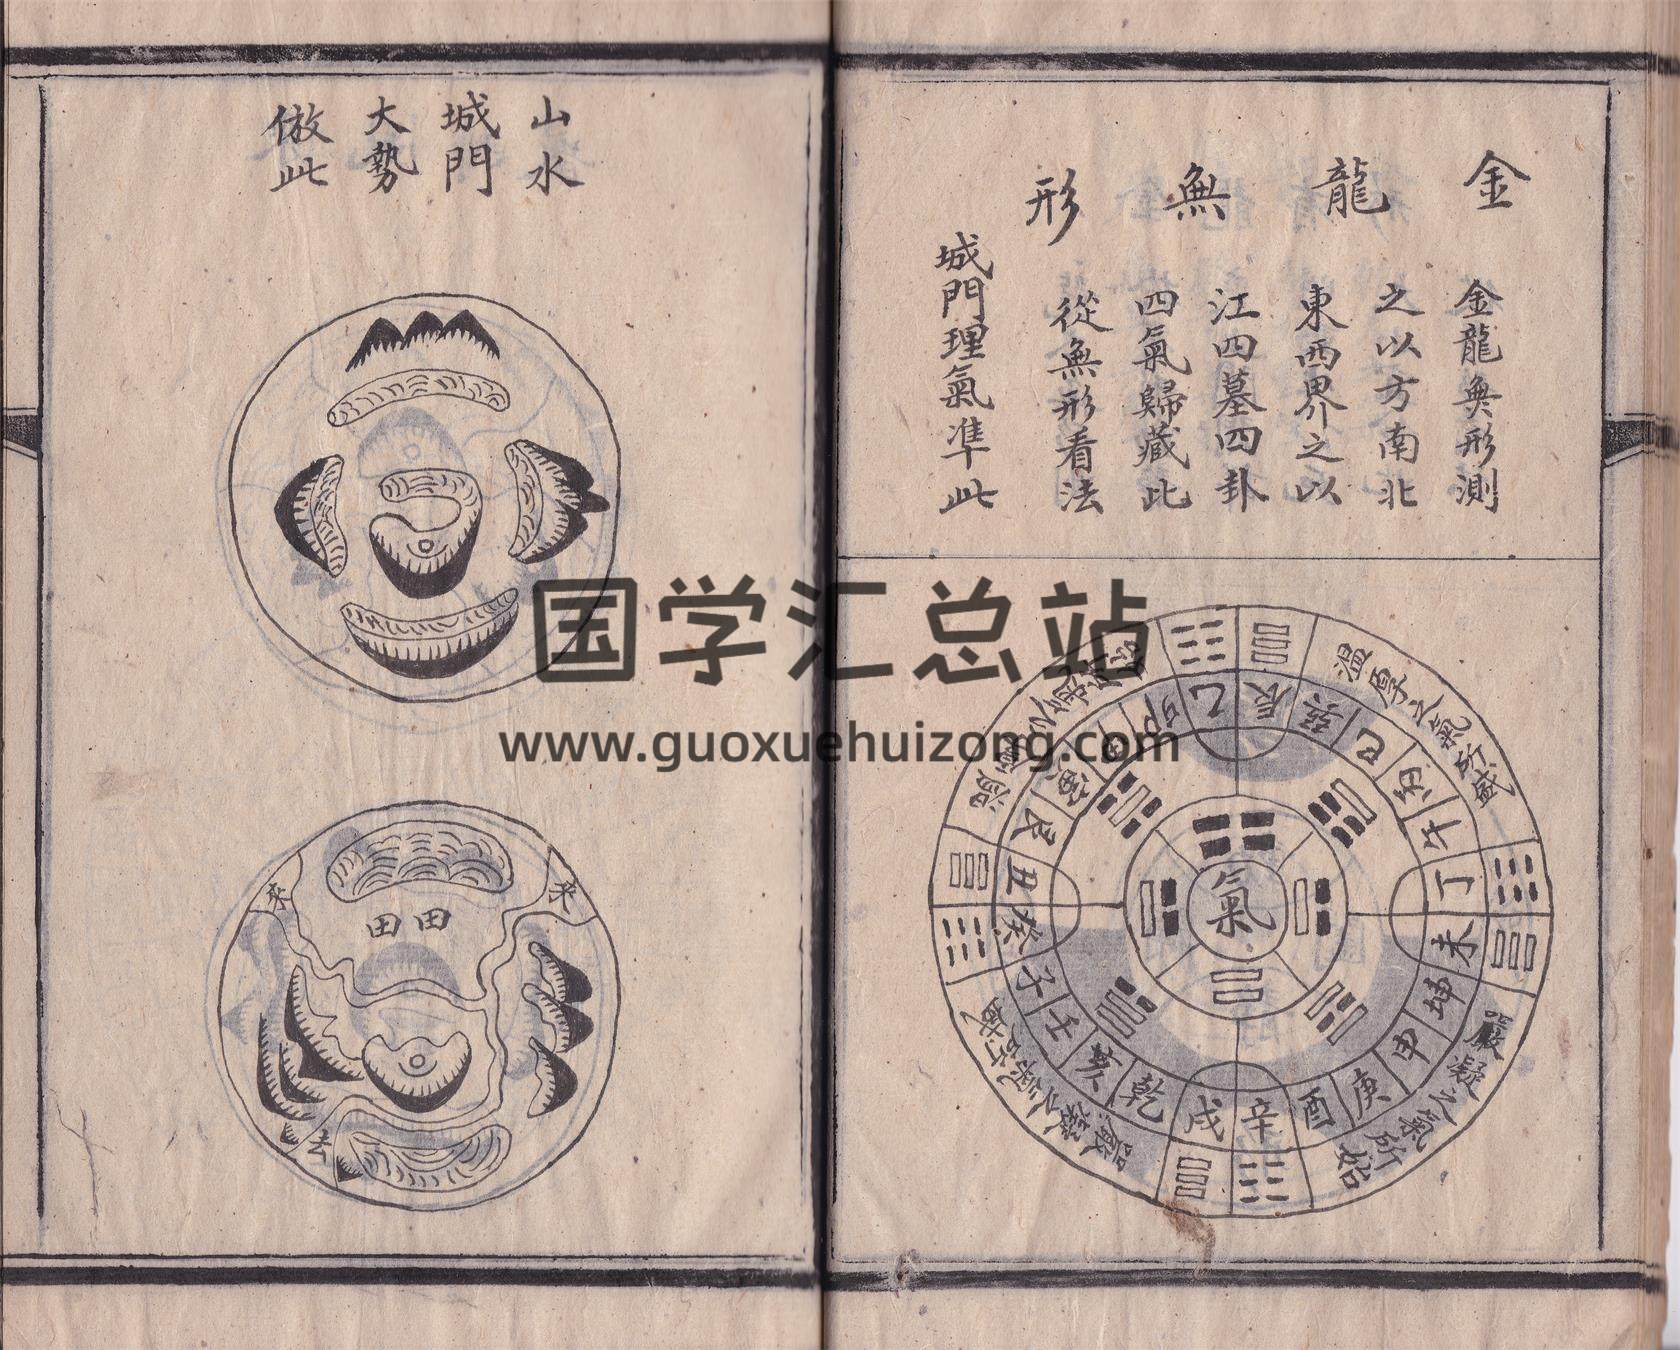 金龍無形
金龍無形測
之以方南北
東西界之以
江四墓四卦
四氣歸藏此
從無形看法
城門理氣準此
氣
乙
辰
巽
巳
丙
午
丁
未
坤
申
庚
酉
辛
戌
乾
亥
壬
子
癸
丑
艮
寅
甲
卯
溫厚之氣所盛
嚴凝之氣所始
山水
城門
大勢
倣此
來
來
田田
去
国学汇总站
www.guoxuehuizong.com